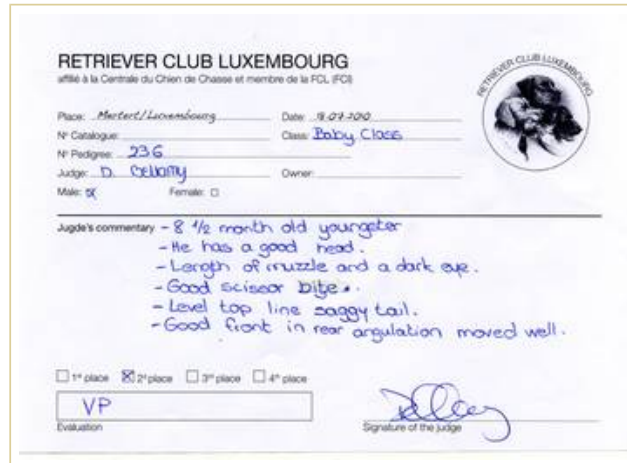 RETRIEVER CLUB LUXEMBOURG
affilié à la Centrale du Chien de Chasse et membre de la FCL (FCI)
RETRIEVER CLUB LUXEMBOURG
Place: Mertert/Luxembourg Date: 18.07.2010
N° Catalogue: Class: Baby Class
N° Pedigree: 236
Judge: D. Bellamy Owner:
Male: Female:
Jugde's commentary - 8 1/2 month old youngster
- He has a good head.
- Length of muzzle and a dark eye.
- Good scissor bite.
- Level top line saggy tail.
- Good front in rear angulation moved well.
1e place 2e place 3e place 4e place
VP
Evaluation Signature of the judge